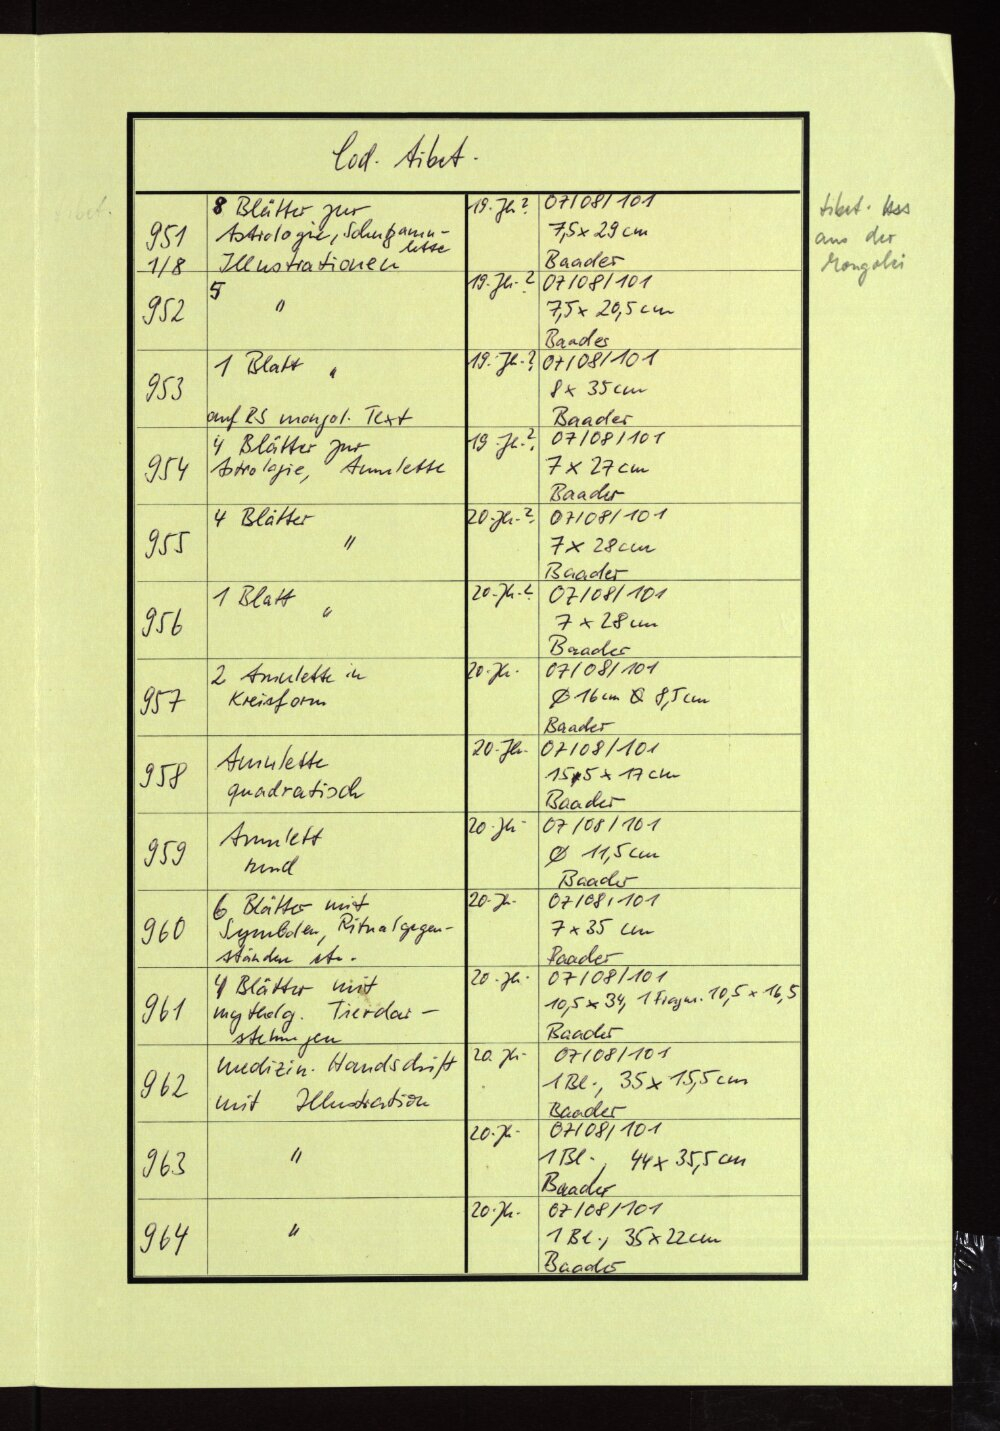 Cod. tibet.
tibet. Hss
aus der
Mongolei
951
1/8
8 Blätter zur
Astrologie, Schutzamu-
lette
Illustrationen
19. Jh?
07/08/101
7,5 x 29 cm
Baader
952
5 "
19. Jh.?
07/08/101
7,5 x 20,5 cm
Baader
953
1 Blatt "
auf RS mongol. Text
19. Jh.?
07/08/101
8 x 35 cm
Baader
954
4 Blätter zur
Astrologie, Amulette
19. Jh.?
07/08/101
7 x 27 cm
Baader
955
4 Blätter
"
20. Jh.?
07/08/101
7 x 28 cm
Baader
956
1 Blatt "
20. Jh.?
07/08/101
7 x 28 cm
Baader
957
2 Amulette in
Kreisform
20. Jh.
07/08/101
Ø 16 cm Ø 8,5 cm
Baader
958
Amulette
quadratisch
20. Jh.
07/08/101
15,5 x 17 cm
Baader
959
Amulett
rund
20. Jh.
07/08/101
Ø 11,5 cm
Baader
960
6 Blätter mit
Symbolen, Ritualgegen-
ständen etc.
20. Jh.
07/08/101
7 x 35 cm
Baader
961
4 Blätter mit
mytholg. Tierdar-
stellungen
20. Jh.
07/08/101
10,5 x 34, 1 Fragm. 10,5 x 16,5
Baader
962
medizin. Handschrift
mit Illustration
20. Jh.
07/08/101
1 Bl., 35 x 15,5 cm
Baader
963
"
20. Jh.
07/08/101
1 Bl., 44 x 35,5 cm
Baader
964
"
20. Jh.
07/08/101
1 Bl., 35 x 22 cm
Baader